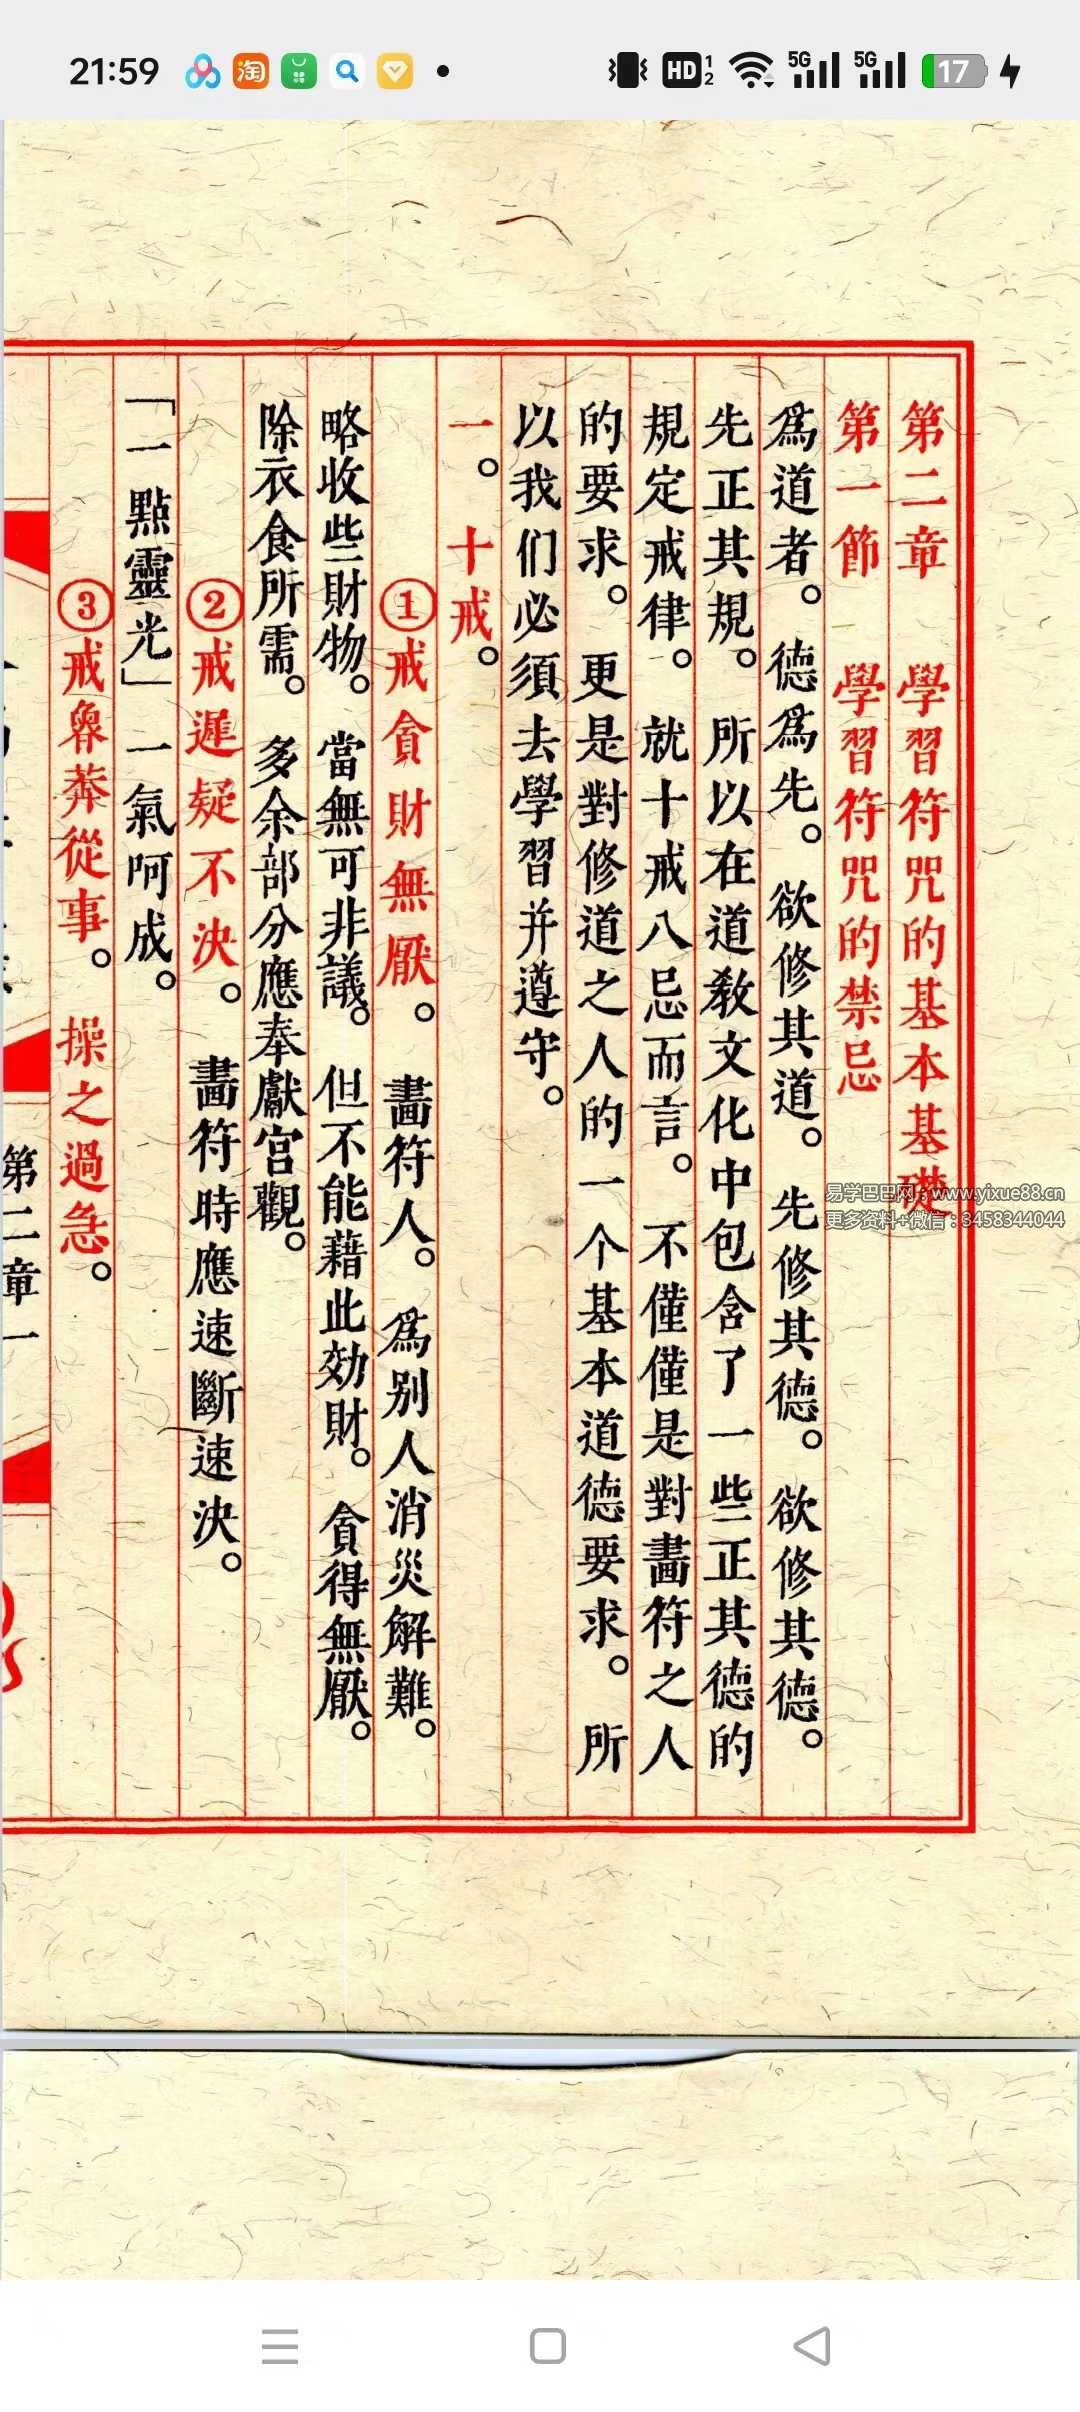 21:59
HD 1 2 5G 5G 17
第二章 學習符咒的基本基礎
第一節 學習符咒的禁忌
爲道者。德爲先。欲修其道。先修其德。欲修其德。
先正其規。所以在道敎文化中包含了一些正其德的
規定戒律。就十戒八忌而言。不僅僅是對畫符之人
的要求。更是對修道之人的一个基本道德要求。所
以我们必須去學習并遵守。
一。十戒。
①戒貪財無厭。畫符人。爲別人消災解難。
略收些財物。當無可非議。但不能藉此効財。貪得無厭。
除衣食所需。多余部分應奉獻宮觀。
②戒遲疑不決。畫符時應速斷速決。
「一點靈光」一氣呵成。
③戒魯莽從事。操之過急。
第二章一
易学巴巴网：www.yixue88.cn
更多资料+微信：3458344044